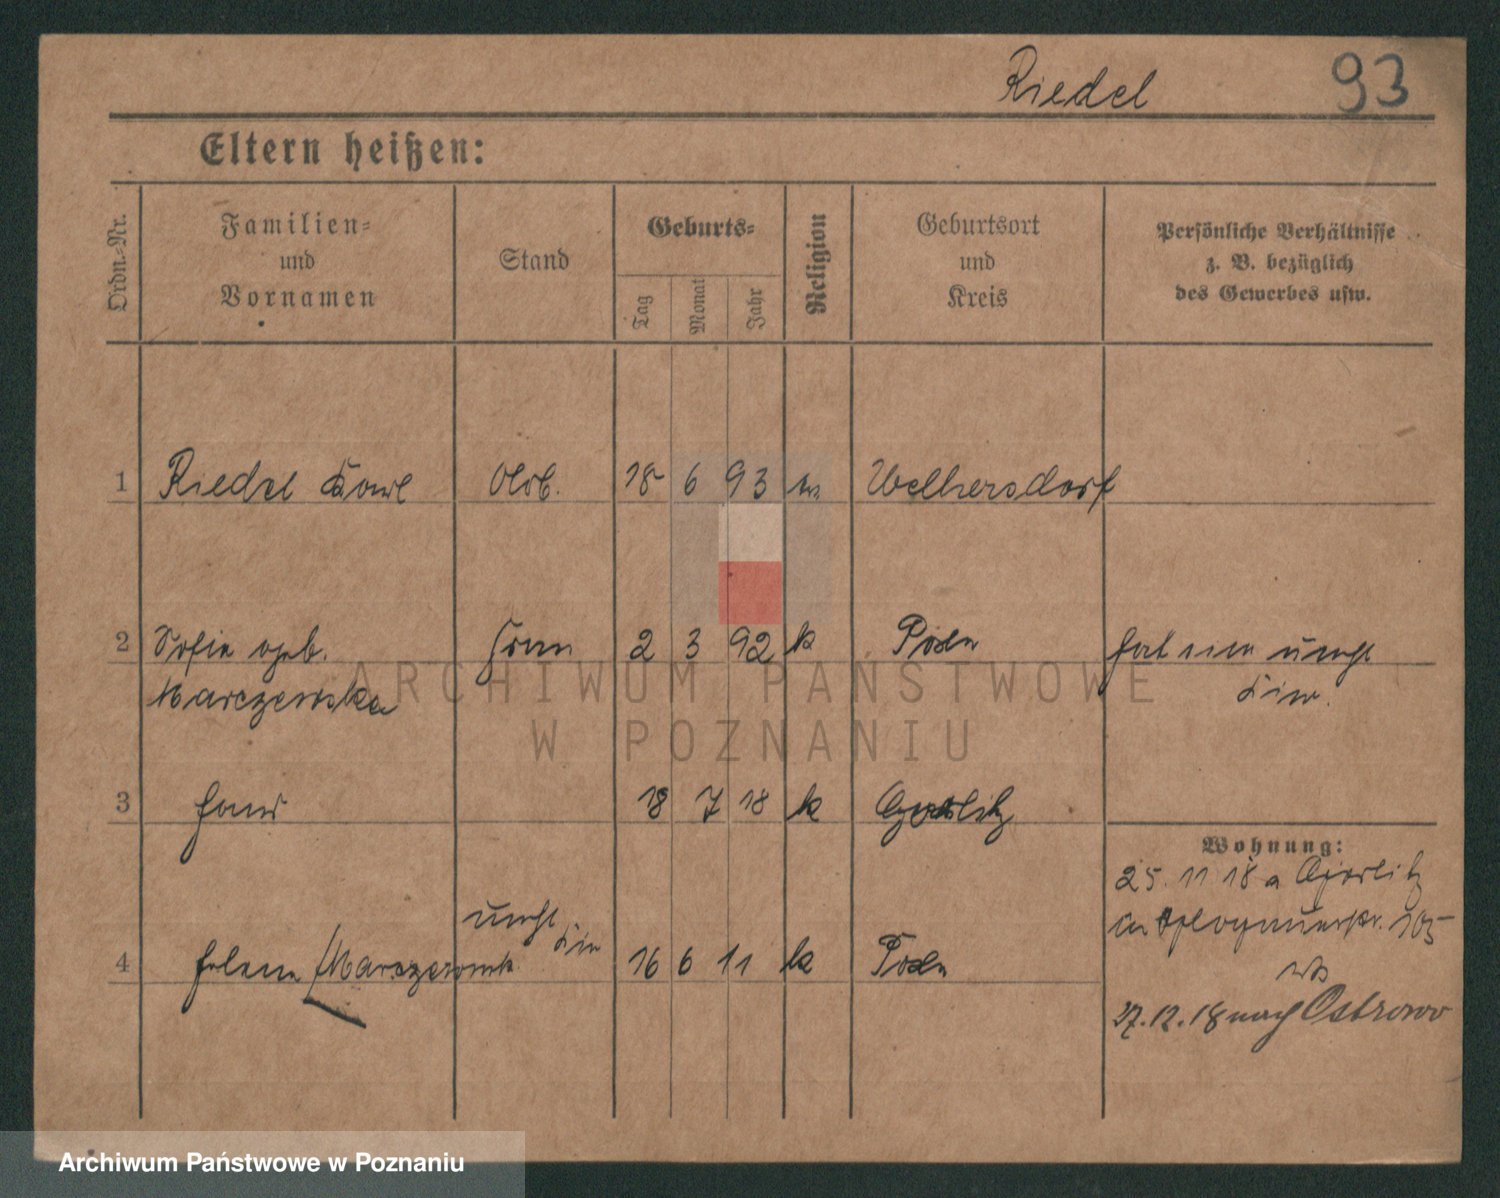 Riedel 93
Eltern heißen:
Ordn.-Nr.
Familien-
und
Vornamen
Stand
Geburts-
Tag
Monat
Jahr
Religion
Geburtsort
und
Kreis
Persönliche Verhältnisse
z. B. bezüglich
des Gewerbes usw.
1 Riedel Karl 18 6 93
2 Sofie geb. Frau 2 3 92 k Posen hat ein unehl
Marczewska Kind.
ARCHIWUM PAŃSTWOWE
W POZNANIU
3 Hans 18 7 18 k Görlitz
Wohnung:
25. 11 18 a Görlitz
unehl Kind
4 Helene 16 6 11 k Posen
27.12.18 nach Ostrowo
Archiwum Państwowe w Poznaniu